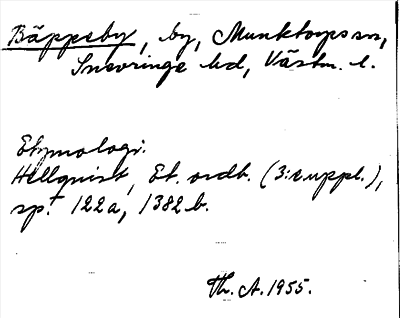 Bäppeby, by, Munktorps sn,
Snevringe hd, Västm. l.
Etymologi.
Hellquist, Et. ordb. (3:e uppl.),
sp. 122a, 1382b.
Th. A. 1955.